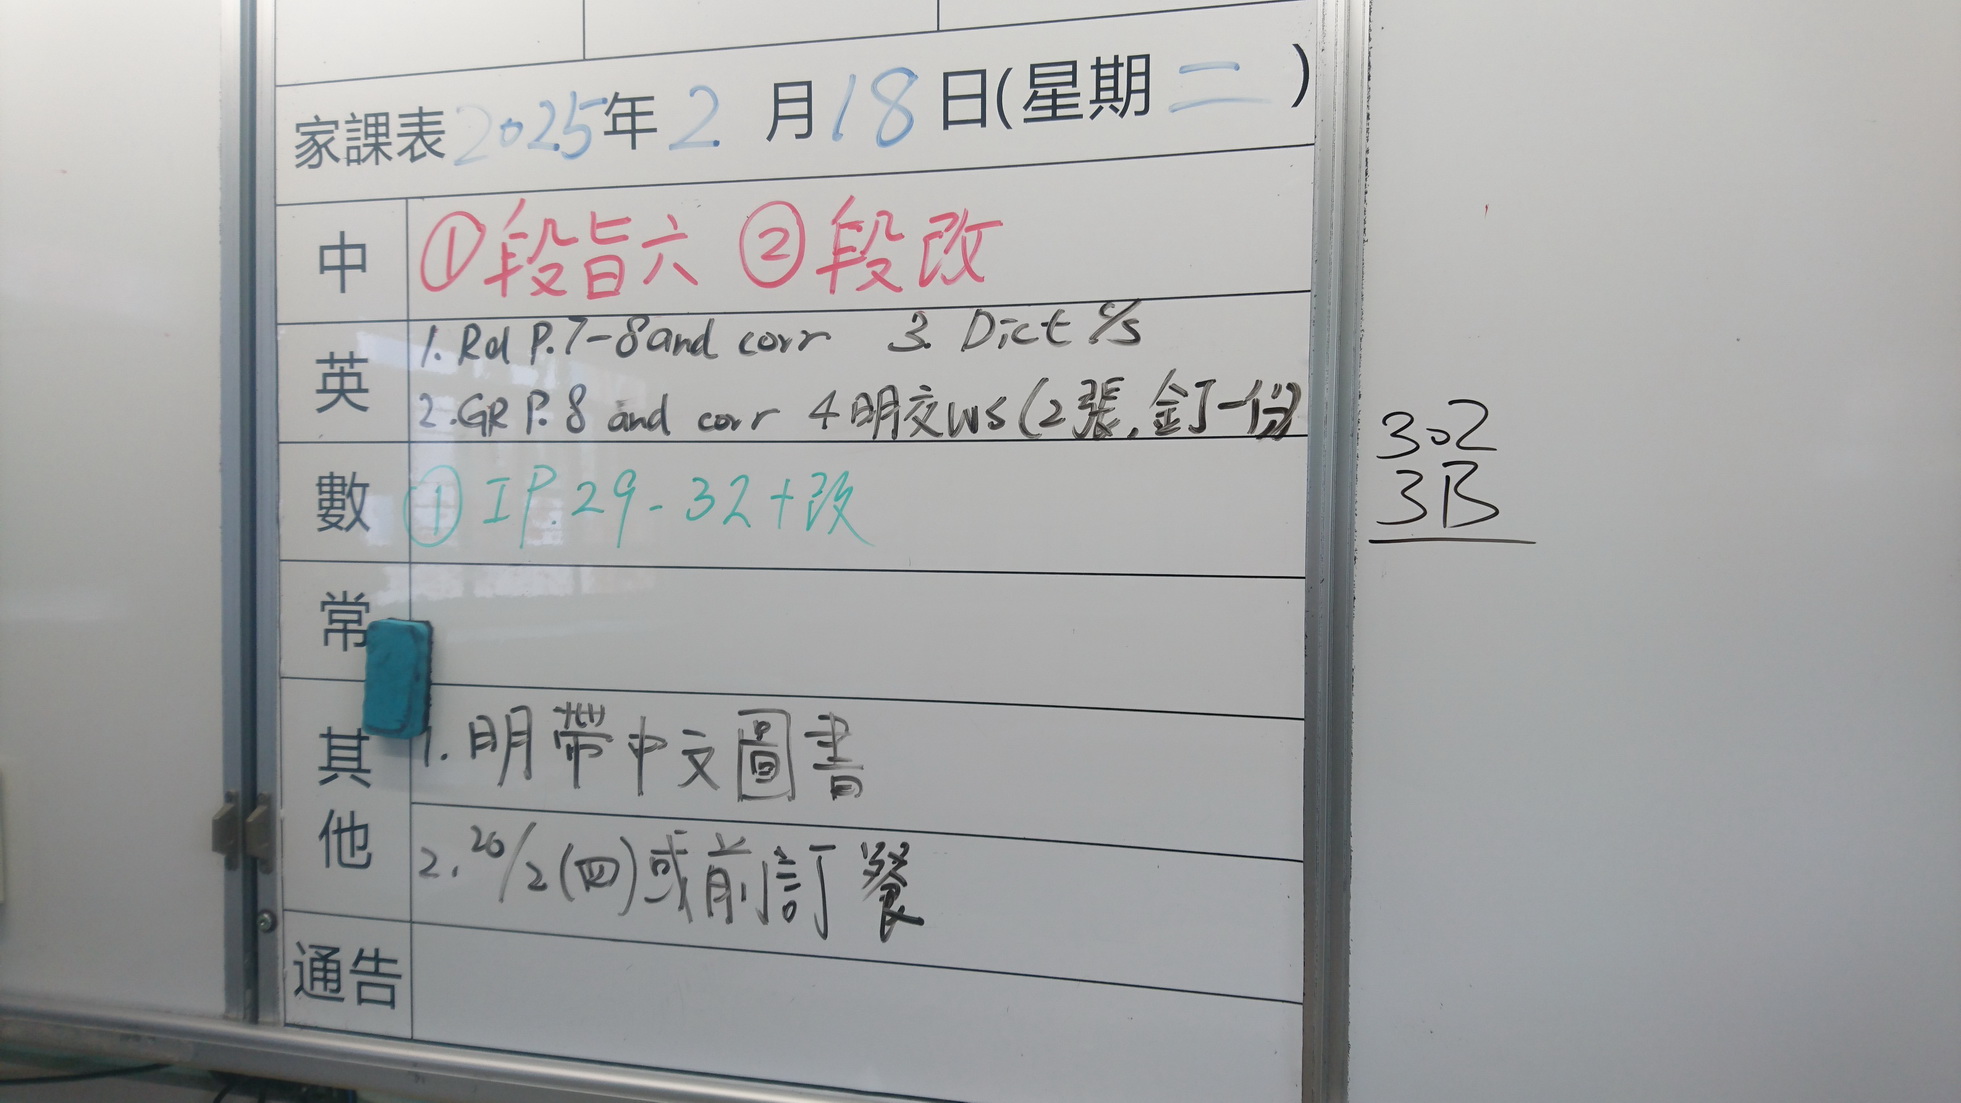 家課表 2025年 2 月 18 日(星期 二 )
中 ①段旨六 ②段改
英 1. Rd P.7-8 and corr 3. Dict c/s
2. GR P.8 and corr 4 明交WS (2張,釘一份)
數 ① I P.29-32+改
常
其他 1. 明帶中文圖書
2. 20/2 (四)或前訂餐
通告
302
3B